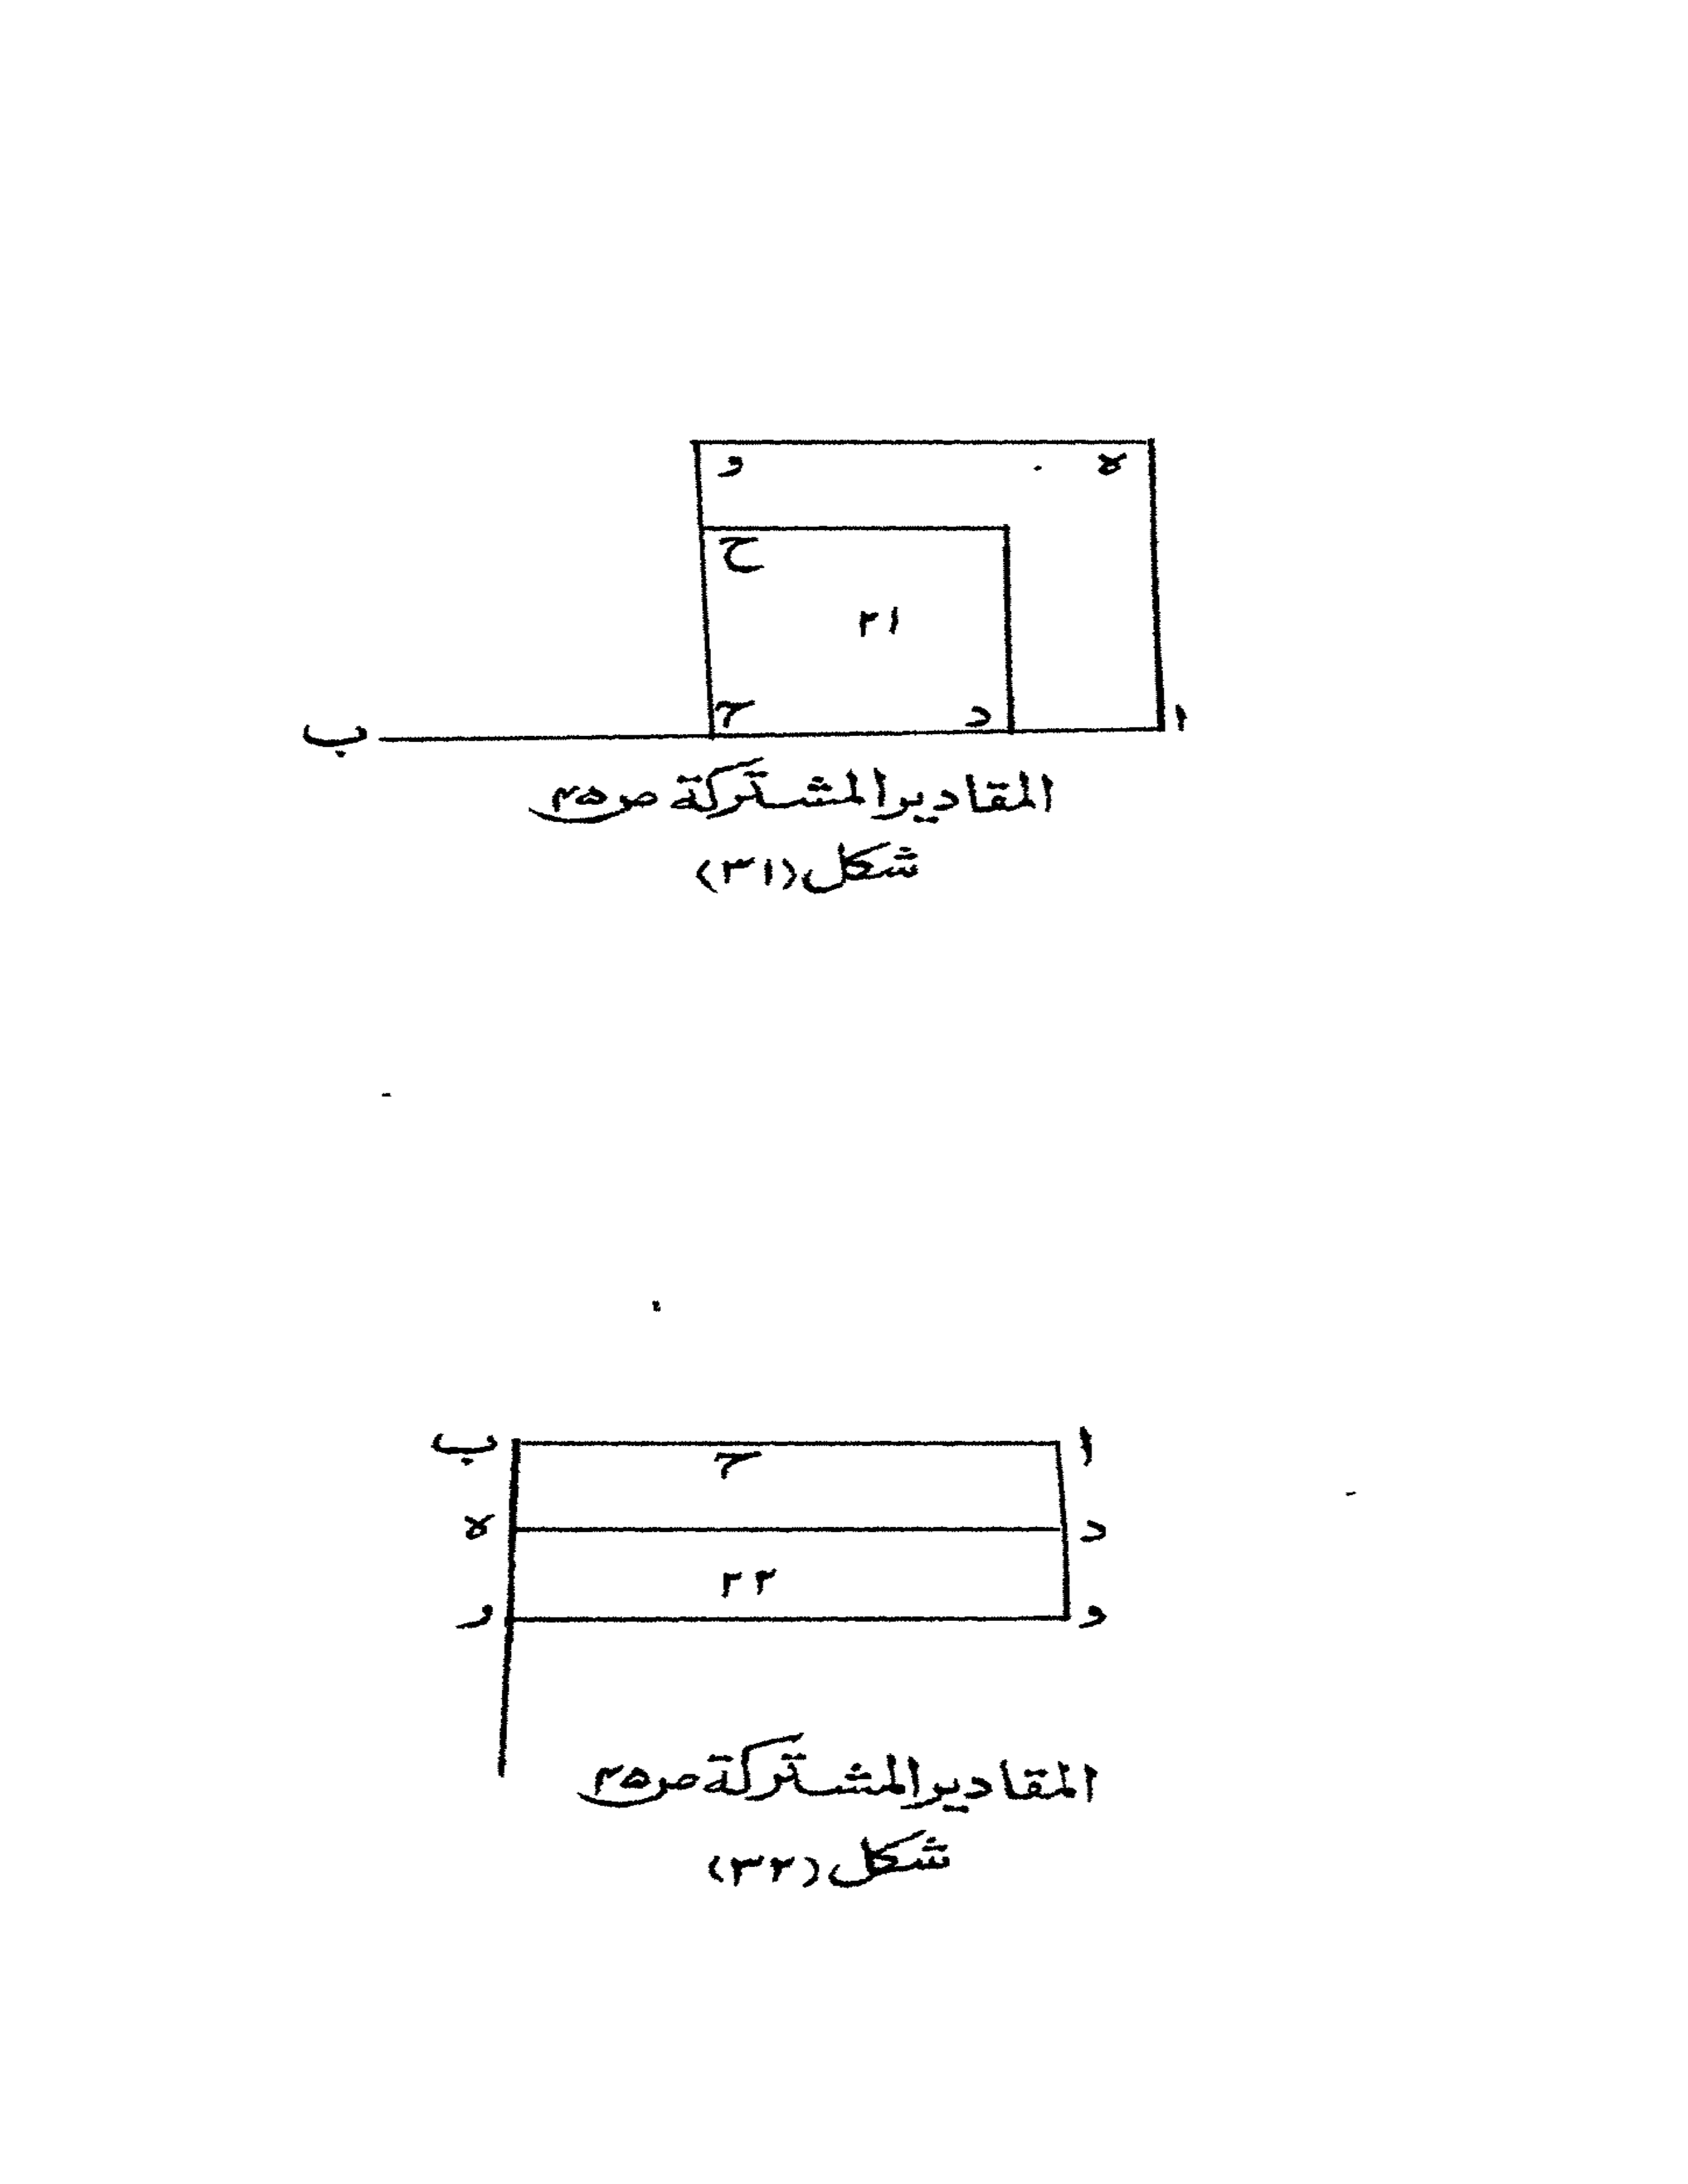 ه و
ح
٢١
ا د ح ب
المقادير المشتركة ص ٤٥
شكل (٣١)
ا ح ب
د ه
٢٢
و و
المقادير المشتركة ص ٤٥
شكل (٣٢)